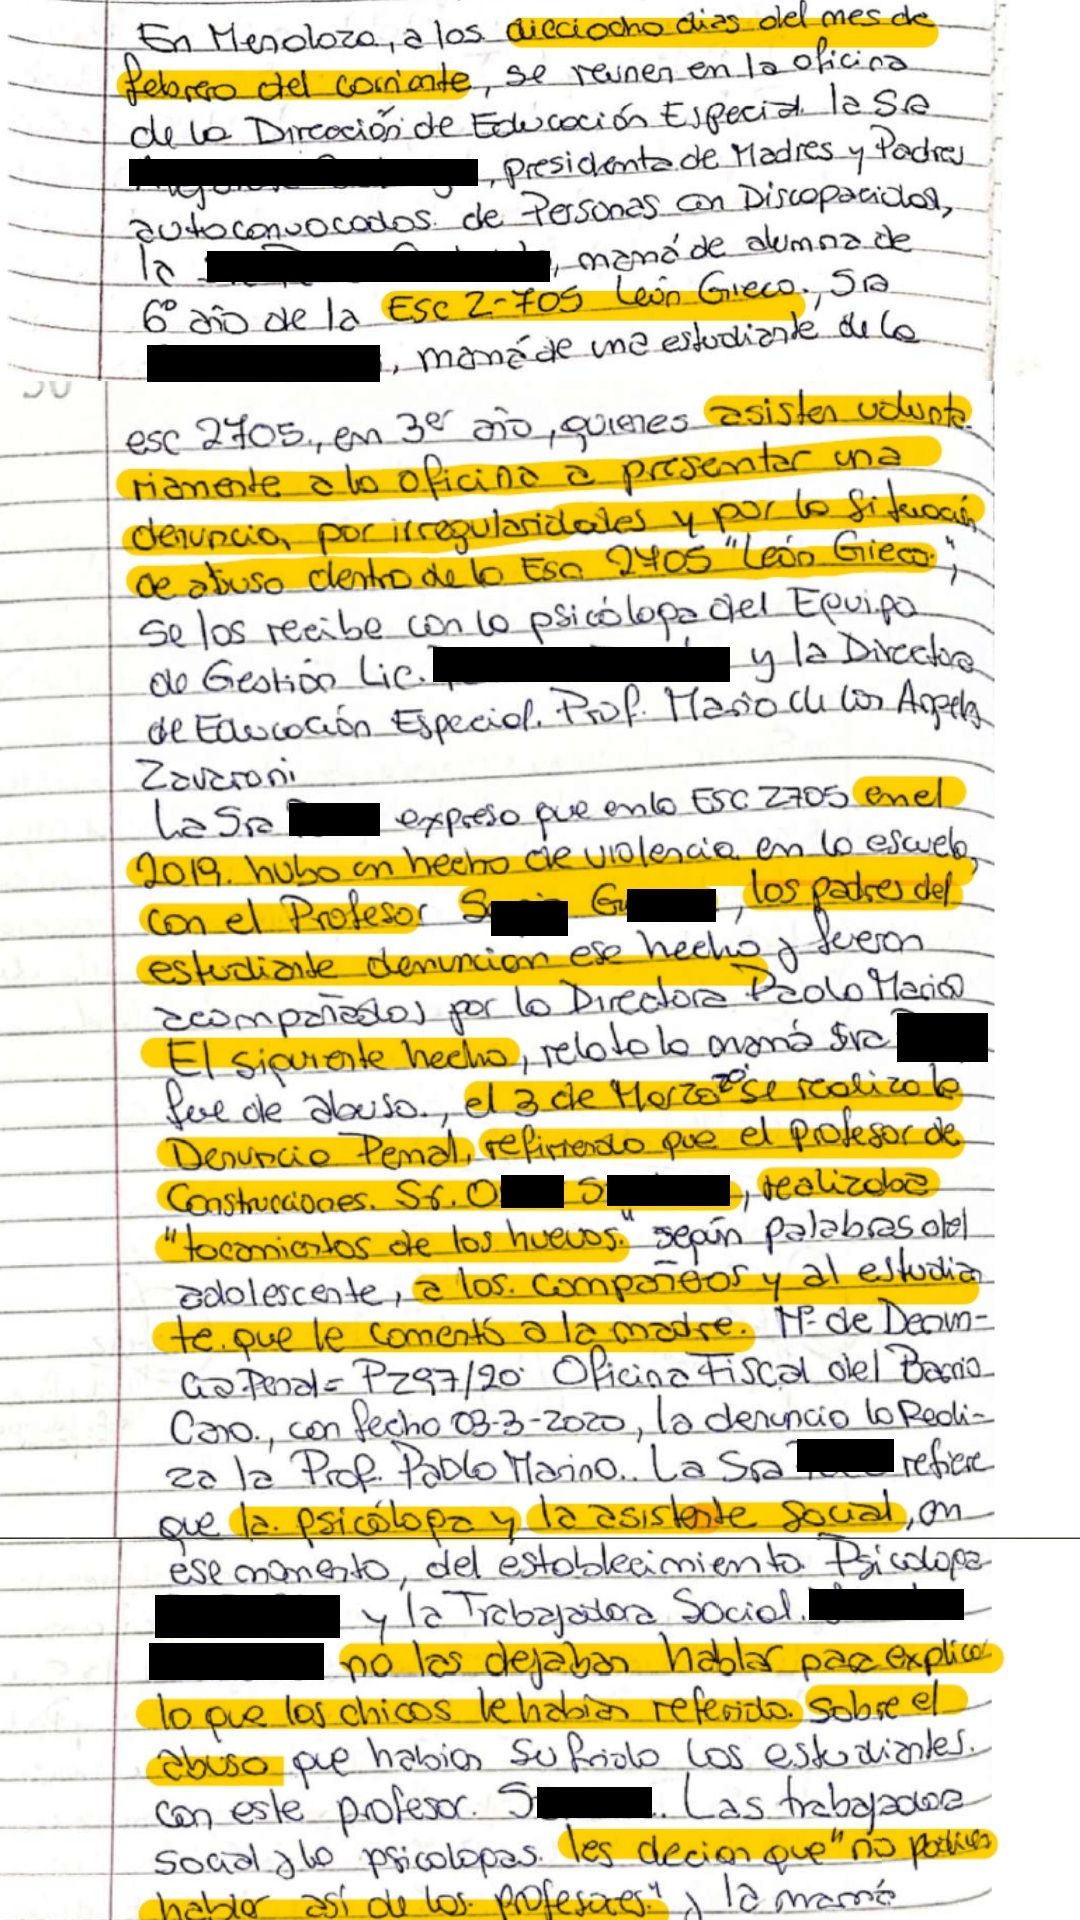 En Mendoza, a los dieciocho dias del mes de
febrero del corriente, se reunen en la oficina
de la Dirección de Educación Especial la Sra
, presidenta de Madres y Padres
autoconvocados de Personas con Discapacidad,
la , mamá de alumna de
6º año de la Esc 2-705 León Gieco., Sra
, mamá de una estudiante de la
esc 2705., en 3er año, quienes asisten volunta
riamente a la oficina a presentar una
denuncia, por irregularidades y por la situación
de abuso dentro de la Esc 2705 "León Gieco.",
se los recibe con la psicóloga del Equipo
de Gestión Lic. y la Directora
de Educación Especial. Prof. Maria de los Angeles
Zavaroni
La Sra expreso que en la ESC 2705 en el
2019. hubo un hecho de violencia en la escuela,
con el Profesor S G , los padres del
estudiante denuncian ese hecho y fueron
acompañados por la Directora Paola Marino
El siguiente hecho, relato la mamá Sra
fue de abuso., el 3 de Marzo 20 se realizo la
Denuncia Penal, refiriendo que el profesor de
Construcciones. Sr. O S , realizaba
"tocamientos de los huevos." según palabras del
adolescente, a los compañeros y al estudian
te que le comentó a la madre. Nº de Denun-
cia Penal= P297/20 Oficina Fiscal del Barrio
Cano., con fecha 03-3-2020, la denuncia la Reali-
za la Prof. Paola Marino.. La Sra refiere
que la psicóloga y la asistente social, en
ese momento, del establecimiento Psicologa
y la Trabajadora Social.
no las dejaban hablar para explicar
lo que los chicos le habían referido. Sobre el
abuso que habian sufrido los estudiantes.
con este profesor. S . Las trabajadora
social y la psicologas. les decian que "no podian
hablar así de los profesores" y la mamá